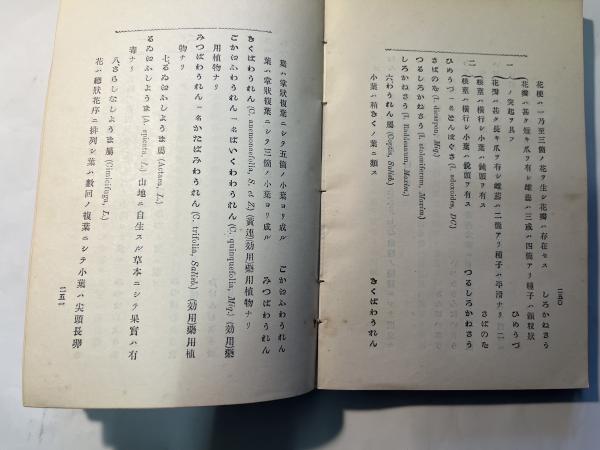 花梗ハ一乃至三個ノ花ヲ生シ花瓣ハ存在セス しろかねさう
花瓣ハ甚タ短キ爪ヲ有シ雄蕊ハ三或ハ四個アリ種子ハ顆粒狀
ノ突起ヲ具フ ひめうづ
花瓣ハ甚タ長キ爪ヲ有シ雄蕊ハ二個アリ種子ハ平滑ナリ さばのを
根莖ハ橫行シ小葉ハ鈍頭ヲ有ス
根莖ハ橫行シ小葉ハ銳頭ヲ有ス つるしろかねさう
ひめうづ一名とんぼぐさ (I. adoxoides, DC.)
さばのを (I. dicarpon, Miq.)
つるしろかねさう (I. stoloniferum, Maxim.)
しろかねさう (I. Raddeanum, Maxim.)
六 わうれん屬 (Coptis, Salisb.)
小葉ハ稍きくノ葉ニ類ス きくばわうれん
葉ハ掌狀複葉ニシテ五個ノ小葉ヨリ成ル ごかえふわうれん
葉ハ掌狀複葉ニシテ三個ノ小葉ヨリ成ル みつばわうれん
きくばわうれん (C. anemonefolia, S. et Z.) (黃連)(効用)藥用植物ナリ
ごかえふわうれん一名ばいくわわうれん (C. quinquefolia, Miq.) (効用)藥
用植物ナリ
みつばわうれん一名かたばみわうれん (C. trifolia, Salisb.) (効用)藥用植
物ナリ
七 るゐえふしようま屬 (Actaea, L.)
るゐえふしようま (A. spicata, L.) 山地ニ自生スル草本ニシテ果實ハ有
毒ナリ
八 さらしなしようま屬 (Cimicifuga, L.)
花ハ總狀花序ニ排列シ葉ハ數回ノ複葉ニシテ小葉ハ尖頭長卵